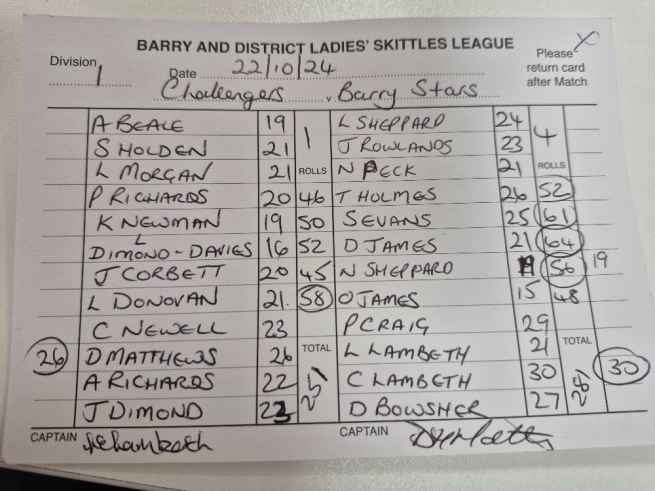 BARRY AND DISTRICT LADIES' SKITTLES LEAGUE
Please return card after Match X
Division 1
Date 22/10/24
Challengers v. Barry Stars
A BEALE 19 1 L SHEPPARD 24 4
S HOLDEN 21 J ROWLANDS 23
L MORGAN 21 ROLLS N PECK 21 ROLLS
P RICHARDS 20 46 T HOLMES 26 52
K NEWMAN 19 50 S EVANS 25 61
L DIMOND-DAVIES 16 52 D JAMES 21 64
J CORBETT 20 45 N SHEPPARD 19 56 19
L DONOVAN 21. 58 O JAMES 15 48
C NEWELL 23 P CRAIG 29
26 D MATTHEWS 26 TOTAL L LAMBETH 21 TOTAL
A RICHARDS 22 251 C LAMBETH 30 30
J DIMOND 23 D BOWSHER 27 281
CAPTAIN CAPTAIN